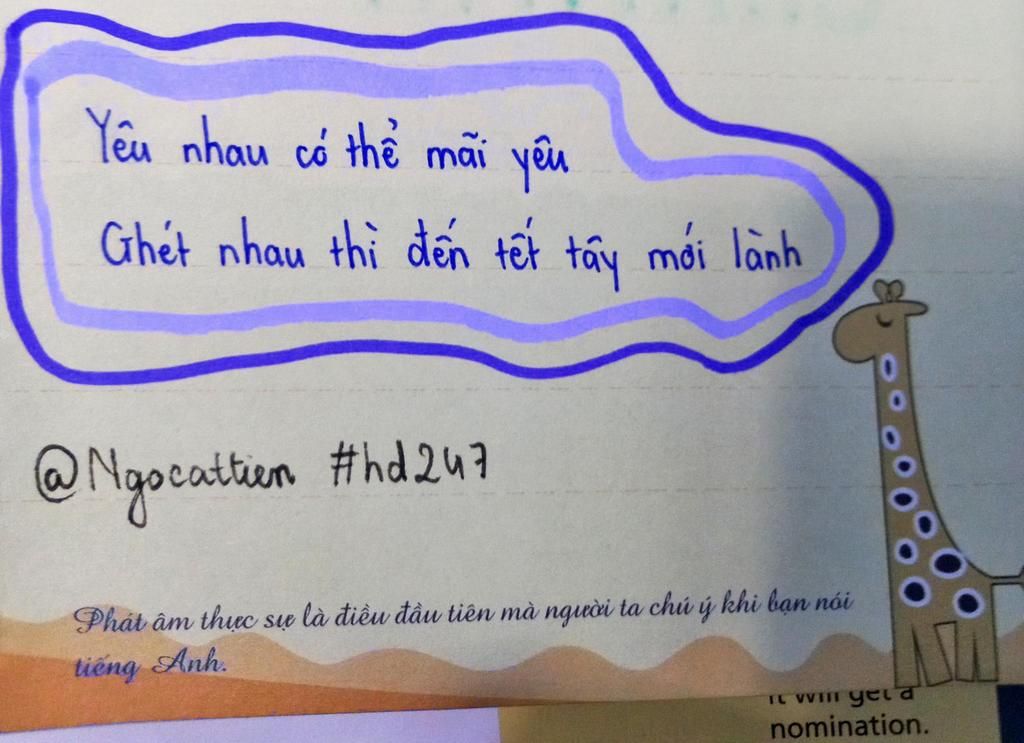 Yêu nhau có thể mãi yêu
Ghét nhau thì đến tết tây mới lành
@Ngocattien #hd247
Phát âm thực sự là điều đầu tiên mà người ta chú ý khi bạn nói
tiếng Anh.
it will get a
nomination.